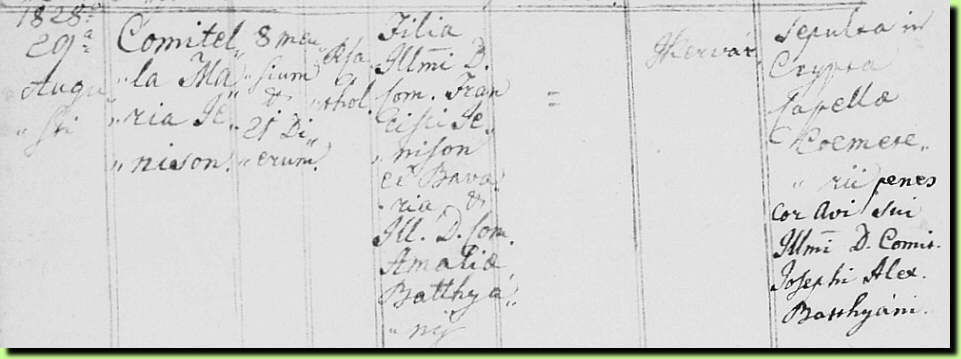 1828.
29ª
Augu
„sti
Comitel„
„la Ma„
„ria Je„
„nison.
8 men„
„sium
&
21 Di„
„erum.
Rsa
Ca
„thol.
Filia
Illmi D.
Com. Fran
cisci Je„
„nison
ex Bava
„ria &
Ill. D. Com.
Amaliæ
Batthya„
„nÿ
=
Sepulta in
Crypta
Capellæ
Coemete„
„rii penes
Cor Avi sui
Illmi D. Comit.
Josephi Alex.
Batthyáni.